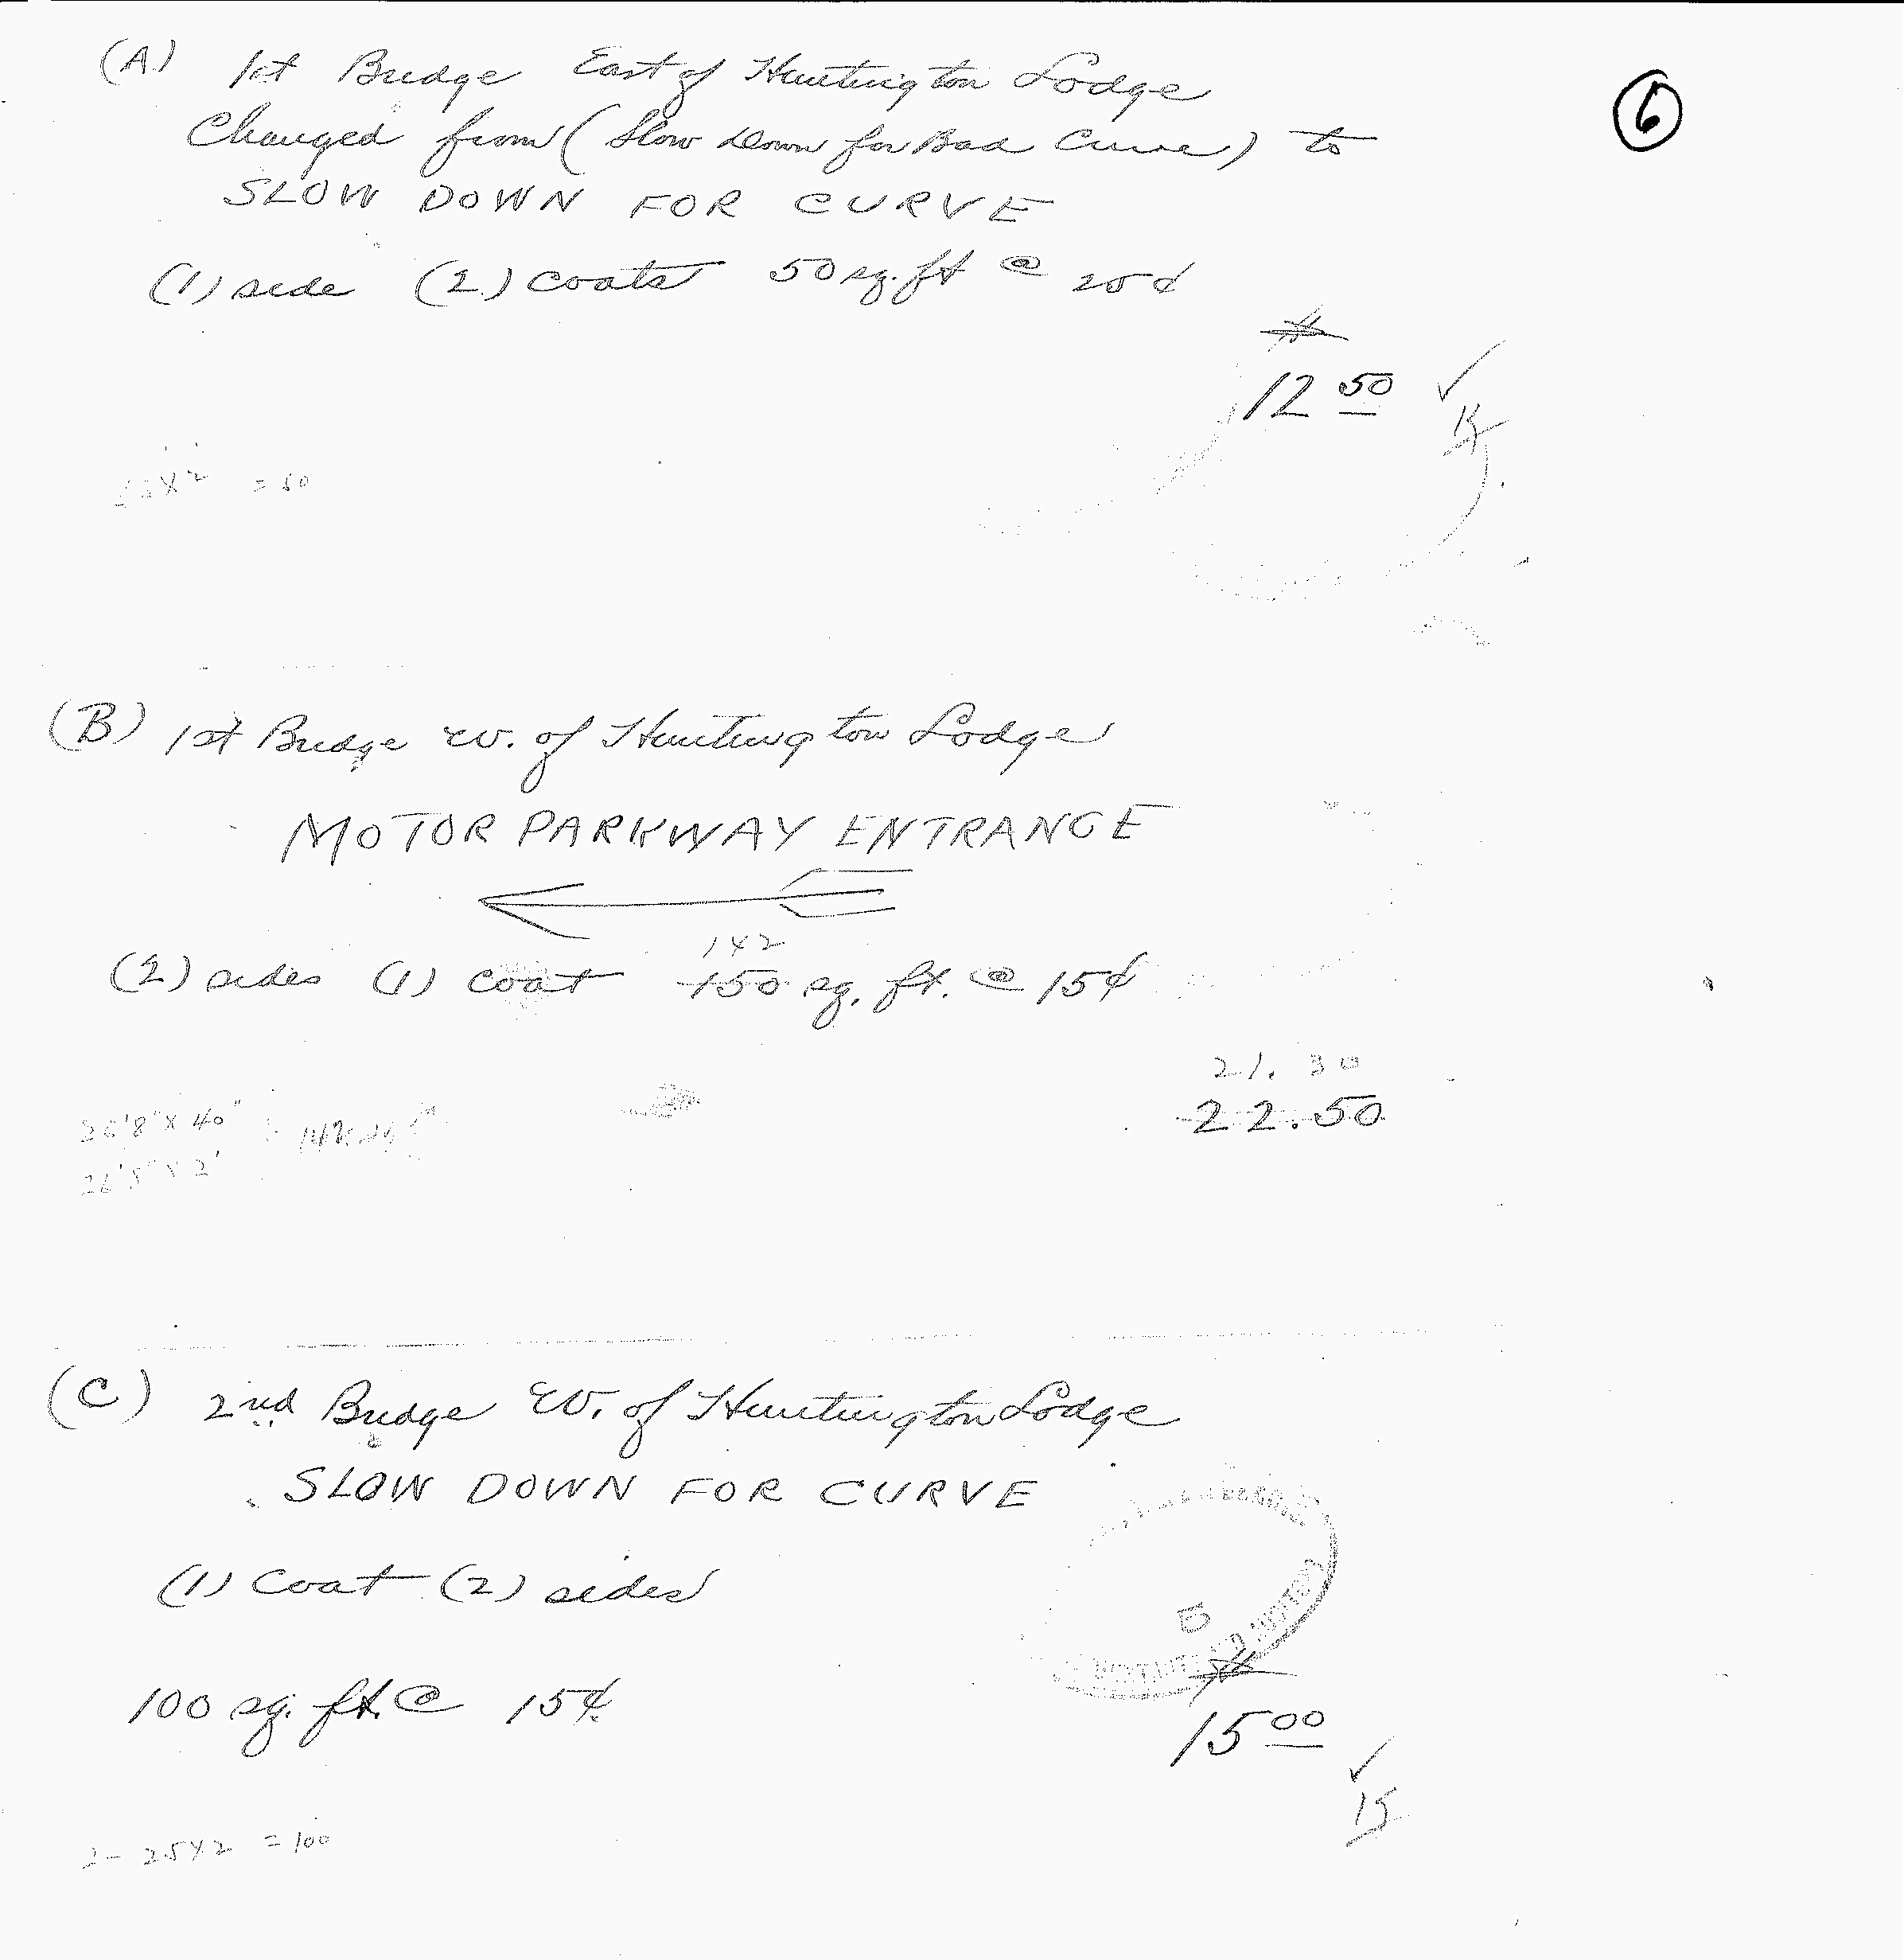 (A) 1st Bridge East of Huntington Lodge
⑥
Changed from (Slow Down for Bad Curve) to
SLOW DOWN FOR CURVE
(1) side (2) coats 50 sq. ft @ 25¢
12 50 ✓
25X2 = 50
(B) 1st Bridge W. of Huntington Lodge
MOTOR PARKWAY ENTRANCE
142
(2) sides (1) coat 150 sq. ft. @ 15¢
21.30
22.50
26'8" X 40"
26'8" X 2'
(C) 2nd Bridge W. of Huntington Lodge
SLOW DOWN FOR CURVE
(1) Coat (2) sides
100 sq. ft. @ 15¢
15 00 ✓
2- 25X2 = 100